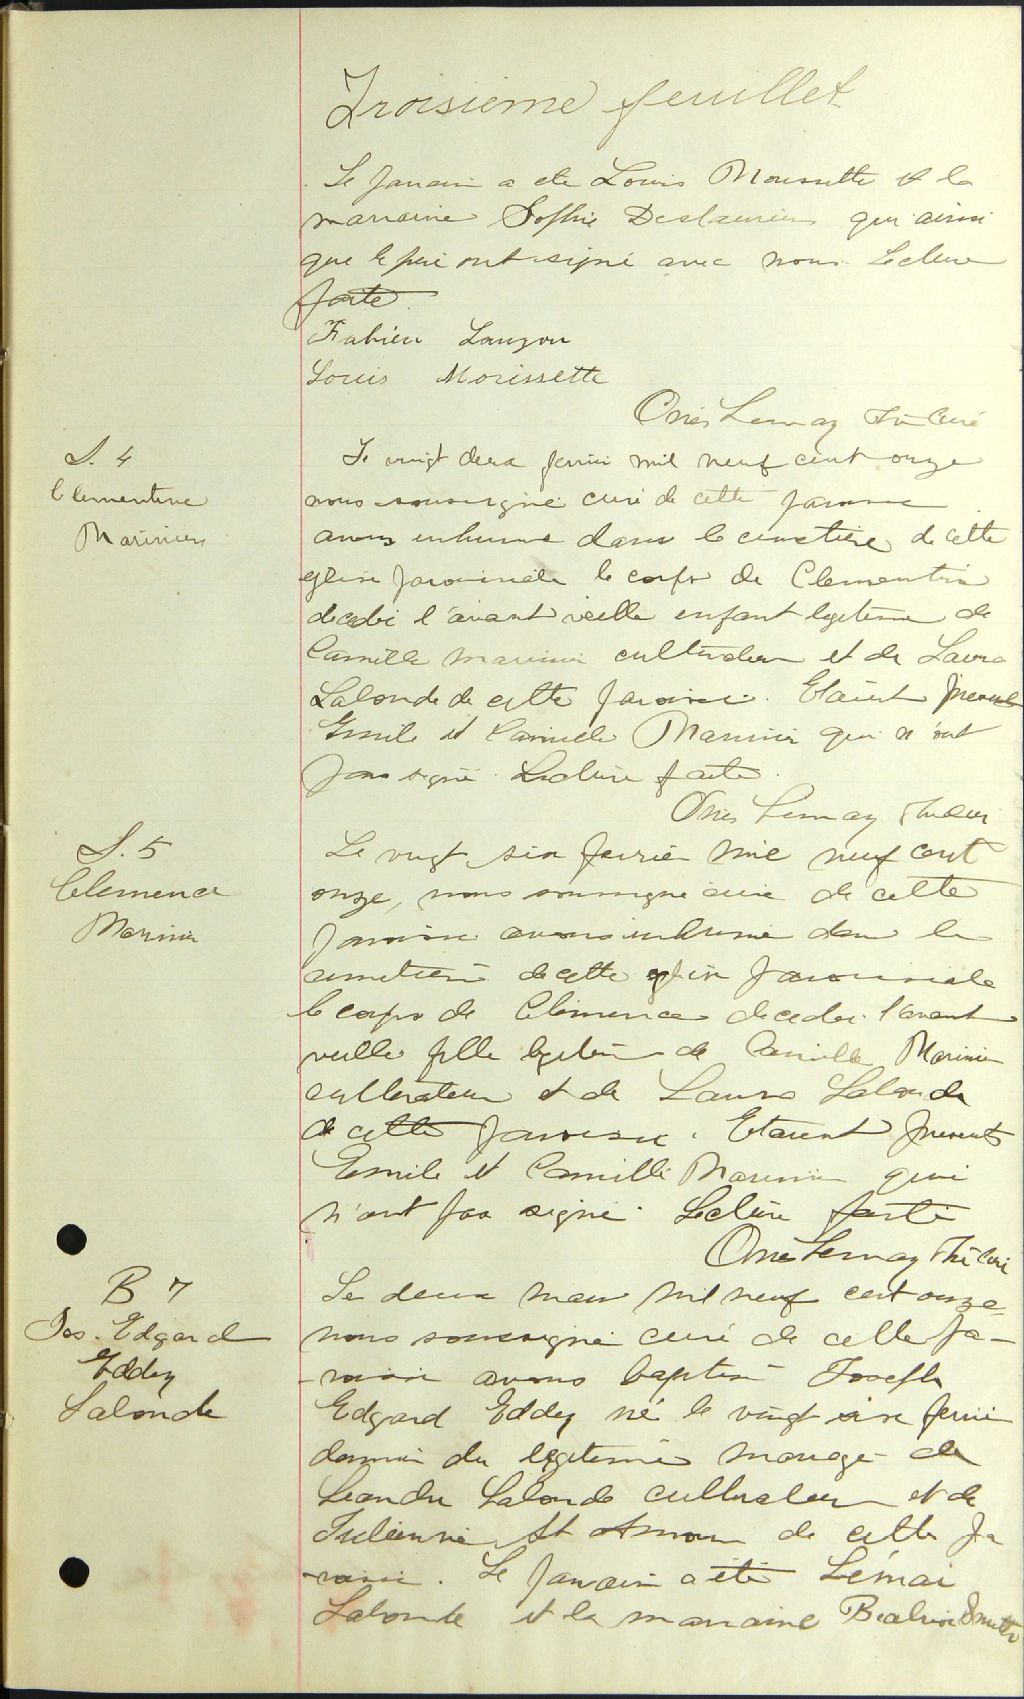 Troisieme feuillet
Le parrain a ete Louis Moussette et la
marraine Sophie Deslauriers qui ainsi
que le père ont signé avec nous. Lecture
faite.
Fabien Lauzon
Louis Morissette
Onés Lemay Ptre Curé
S. 4
Clementine
Marinier
Le vingt deux fevrier mil neuf cent onze
nous soussigné curé de cette paroisse
avons inhumé dans le cimetière de cette
eglise paroissiale le corps de Clementine
decedée l'avant veille enfant legitime de
Camille Marinier cultivateur et de Laura
Lalonde de cette paroisse. Etaient présents
Emile et Camille Marinier qui n'ont
pas signé. Lecture faite.
Onés Lemay Ptre Curé
S. 5
Clemence
Marinier
Le vingt six fevrier mil neuf cent
onze, nous soussigné curé de cette
paroisse avons inhumé dans le
cimetière de cette eglise paroissiale
le corps de Clémence decedée l'avant
veille fille legitime de Camille Marinier
cultivateur et de Laura Lalonde
de cette paroisse. Etaient présents
Emile et Camille Marinier qui
n'ont pas signé. Lecture faite
Onés Lemay Ptre Curé
B 7
Jos. Edgard
Eddy
Lalonde
Le deux mars mil neuf cent onze
nous soussigné curé de cette pa-
-roisse avons baptisé Joseph
Edgard Eddy né le vingt six fevrier
dernier du legitime mariage de
Leandre Lalonde cultivateur et de
Julienne St Amour de cette pa
-roisse. Le parrain a été Lémai
Lalonde et la marraine Beatrice Smith